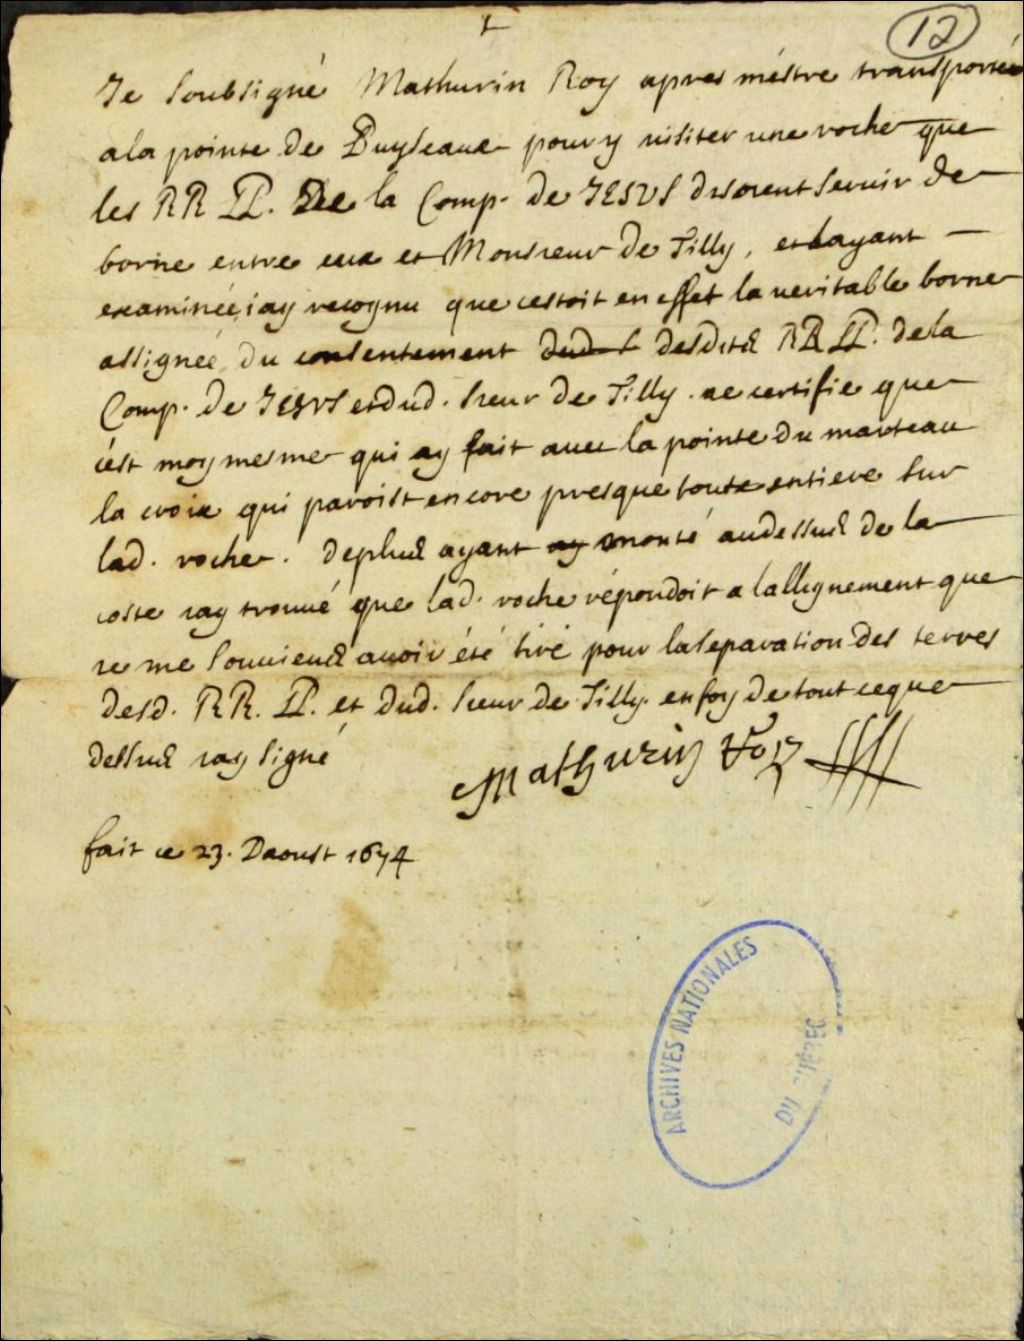 12
Je soubsigné Mathurin Roy apres méstre transporté
a la pointe de Puyseaux pour y visiter une roche que
les RR PP. De la Comp. de JESUS disoient servir de
borne entre eux et Monsieur de Tilly, et layant
examinée, iay recognu que cestoit en effet la veritable borne
assignée du consentement dud desdits RR PP. de la
Comp. de JESUS et dud. sieur de Tilly. ie certifie que
cést moy mesme qui ay fait avec la pointe du marteau
la croix qui paroist encore presque toute entiere sur
lad. roche. deplus ayant ay monté au dessus de la
coste iay trouué que lad. roche répondoit a lallignement que
ie me souuiens auoir été tiré pour la separation des terres
desd. RR. PP. et dud. sieur de Tilly. en foy de tout ce que
dessus iay signé
Mathurin Roy
fait ce 23. Daoust 1674
ARCHIVES NATIONALES
DU QUÉBEC